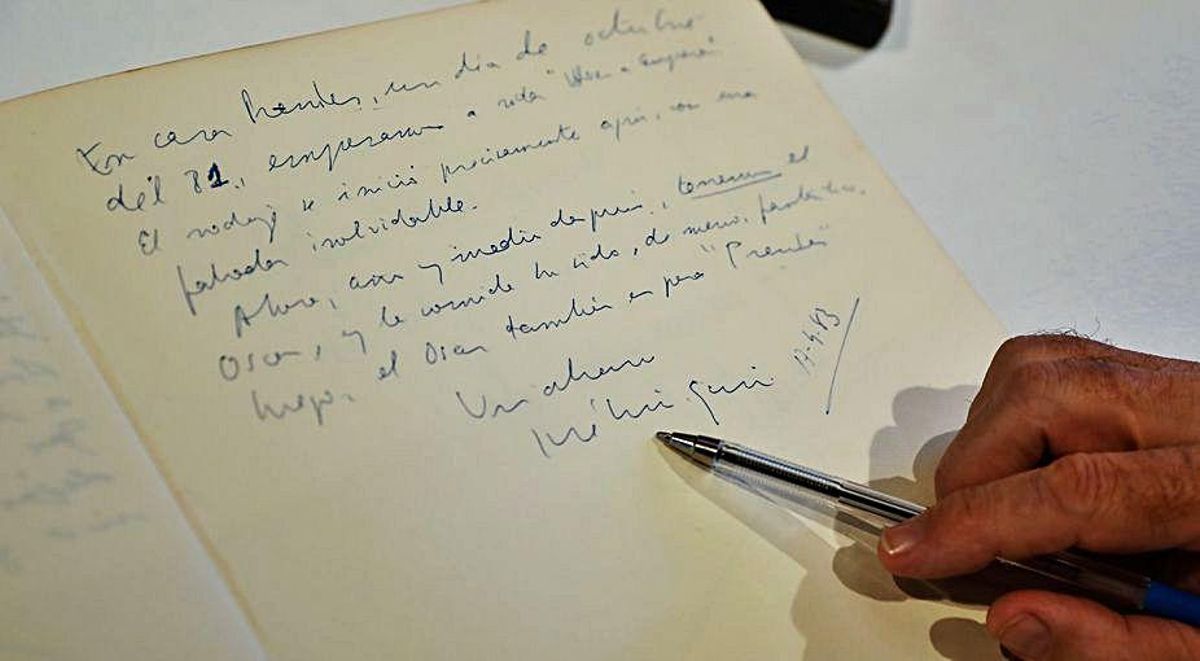 En casa Prendes, un día de octubre
del 81, empezamos a rodar "Volver a empezar"
El rodaje se inició precisamente aquí, con una
fabada inolvidable.
Ahora, año y medio después, tenemos el
Oscar, y la comida ha sido, de nuevo, fantástica.
luego, el Oscar también es para "Prendes"
Un abrazo
José Luis Garci 17-4-83